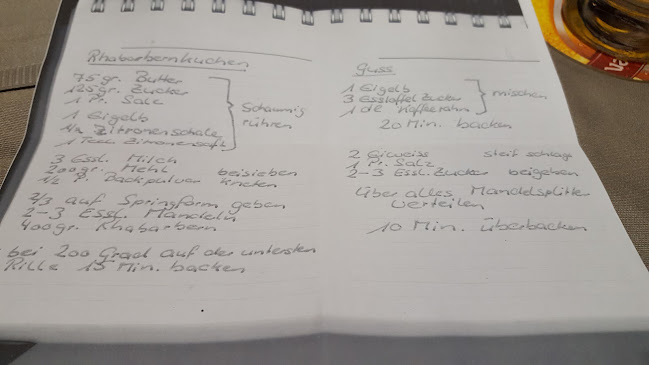 Rhabarbernkuchen
75 gr. Butter
125 gr. Zucker
1 Pr. Salz
1 Eigelb
1/2 Zitronenschale
1 Teel. Zitronensaft
Schaumig
rühren
3 Essl. Milch
200gr. Mehl beisieben
1/2 P. Backpulver kneten
2/3 auf Springform geben
2-3 Essl. Mandeln
400gr. Rhabarbern
bei 200 Grad auf der untersten
Rille 15 Min. backen
Guss
1 Eigelb
3 Esslöffel Zucker
1 dl Kaffeerahm
mischen
20 Min. backen
2 Eiweiss steif schlage
1 Pr. Salz
2-3 Essl. Zucker beigeben
über alles Mandelsplitter
verteilen
10 Min. überbacken